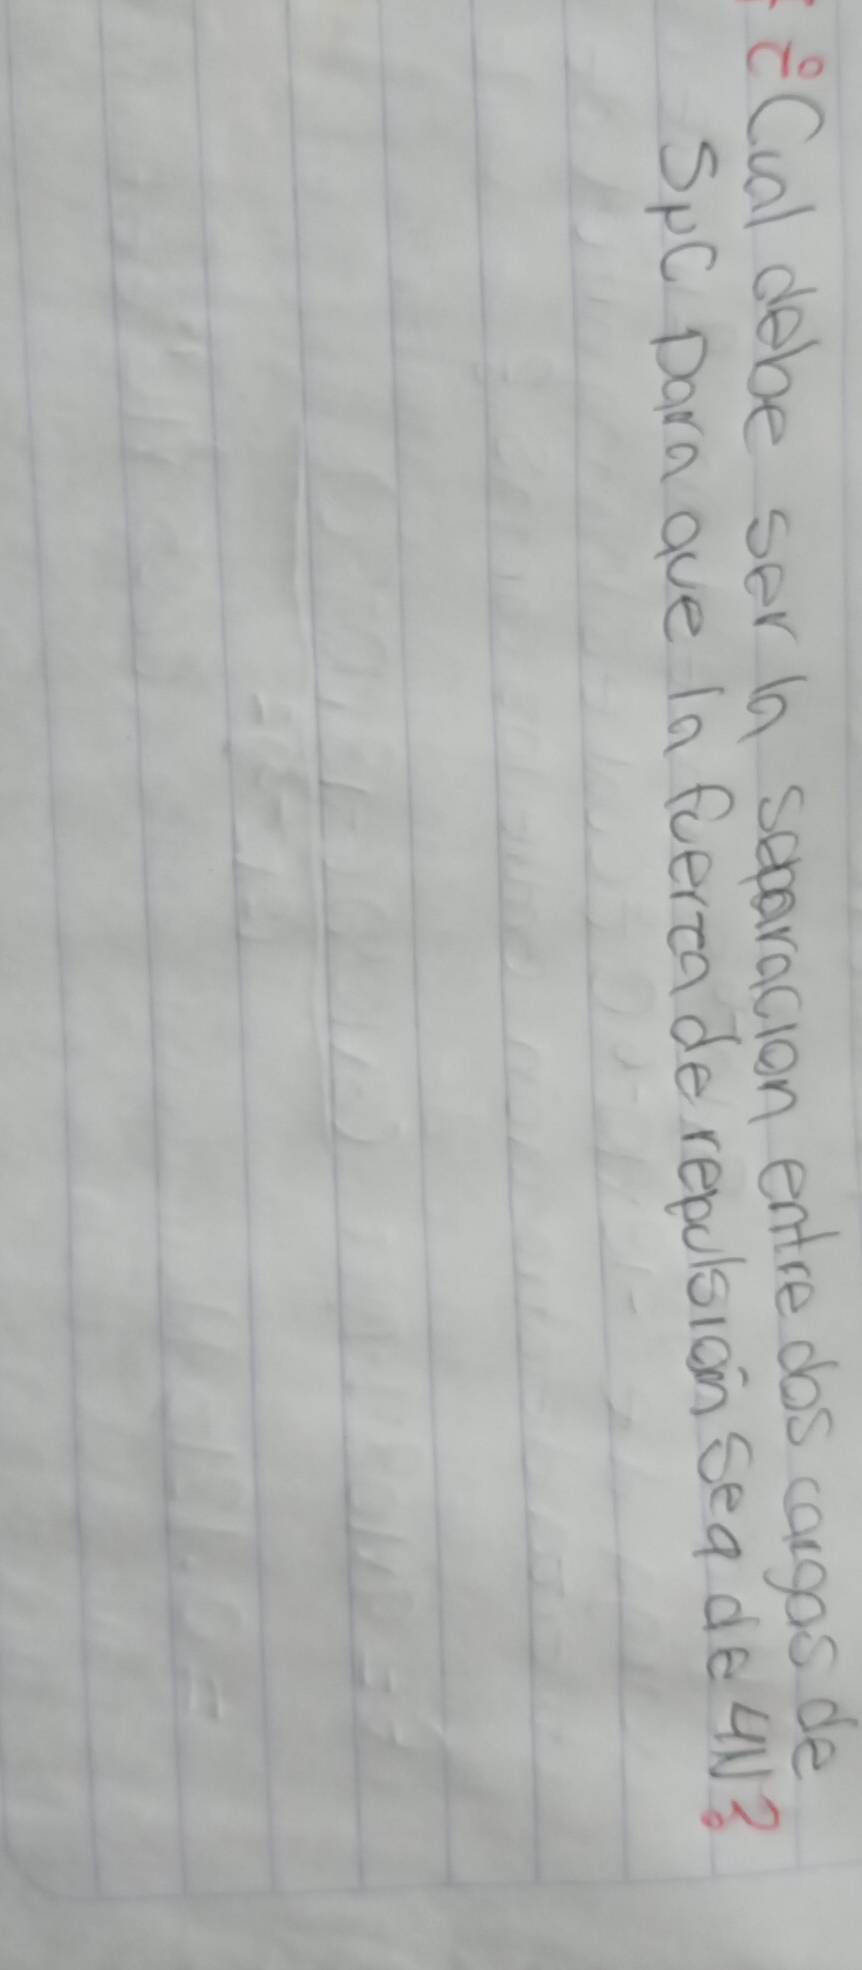 ¿Cual debe ser la separacion entre dos cargas de
5μC para que la fuerza de repulsión sea de 4N?